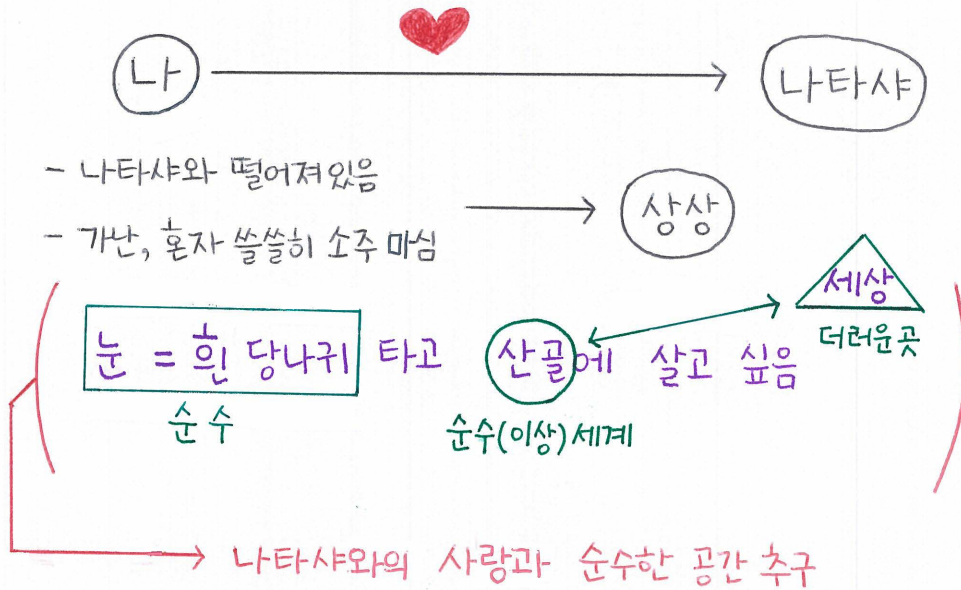 나 → 나타샤
- 나타샤와 떨어져있음
- 가난, 혼자 쓸쓸히 소주 마심
→ 상상
세상
더러운곳
눈 = 흰 당나귀 타고 산골에 살고 싶음
순수
순수(이상)세계
→ 나타샤와의 사랑과 순수한 공간 추구